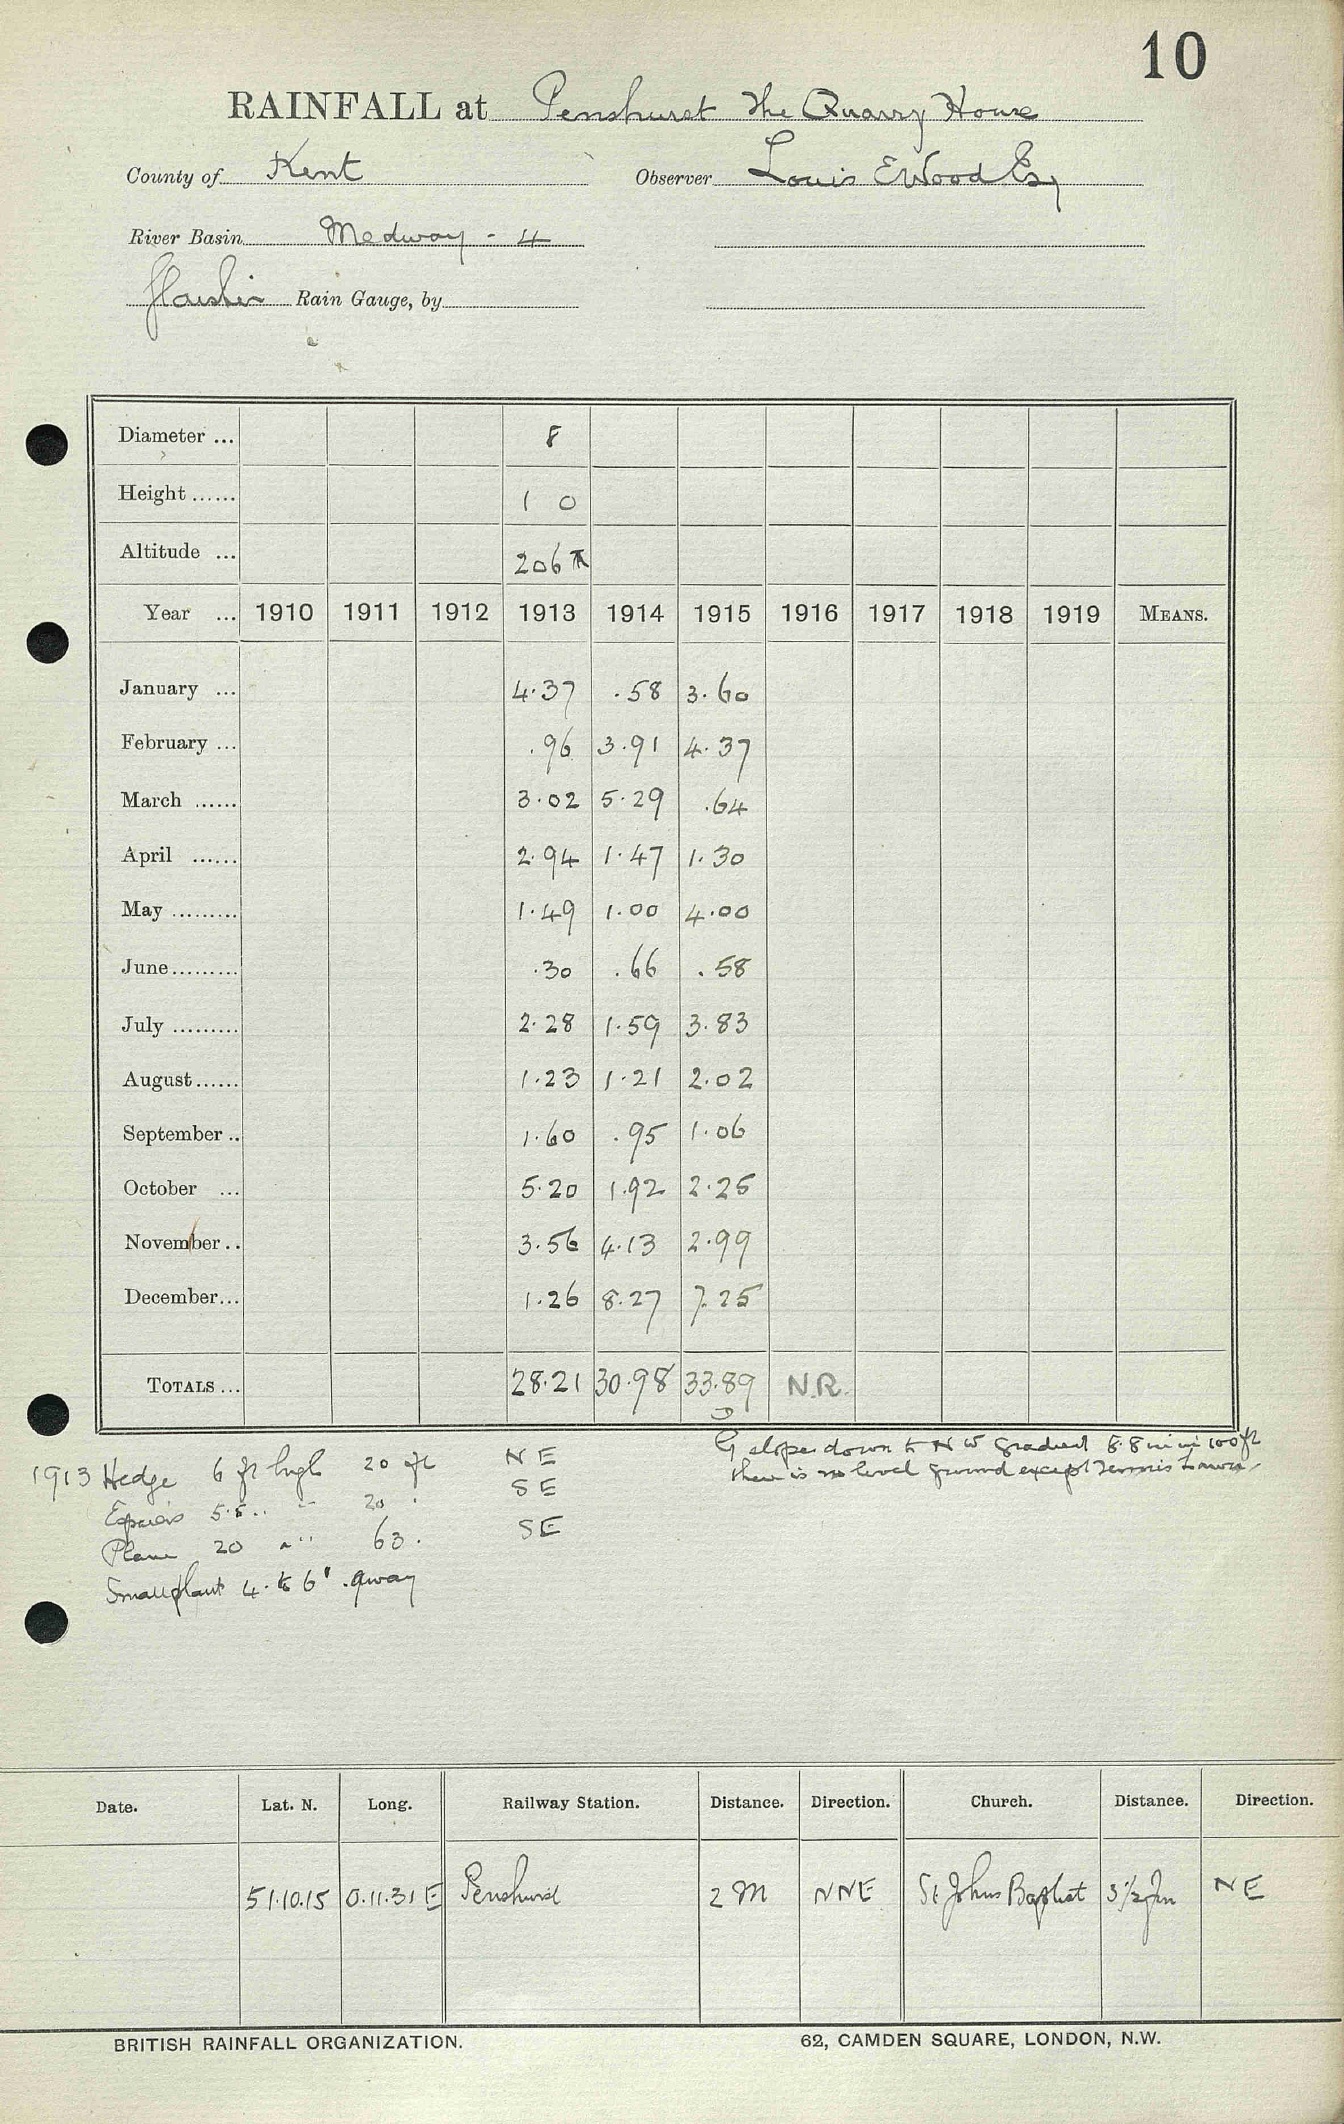 10
RAINFALL at Penshurst The Quarry House
County of Kent Observer Louis E Wood Esq
River Basin Medway - 4
Rain Gauge, by
Diameter ... 8
Height ...... 1 0
Altitude ... 206
Year ... 1910 1911 1912 1913 1914 1915 1916 1917 1918 1919 MEANS.
January ... 4.37 .58 3.60
February ... .96 3.91 4.37
March ...... 3.02 5.29 .64
April ...... 2.94 1.47 1.30
May ......... 1.49 1.00 4.00
June......... .30 .66 .58
July ......... 2.28 1.59 3.83
August...... 1.23 1.21 2.02
September .. 1.60 .95 1.06
October ... 5.20 1.92 2.25
November .. 3.56 4.13 2.99
December... 1.26 8.27 7.25
TOTALS ... 28.21 30.98 33.89 N.R.
G slopes down to N W gradient 8.8 in in 100 ft
there is no level ground except Tennis Lawn
1913 Hedge 6 ft high 20 ft NE
5.5 20 SE
20 63 SE
Small plant 4 to 6' away
Date. Lat. N. Long. Railway Station. Distance. Direction. Church. Distance. Direction.
51.10.15 0.11.31 E Penshurst 2 M NNE St Johns Baptist 3 1/2 fm NE
BRITISH RAINFALL ORGANIZATION. 62, CAMDEN SQUARE, LONDON, N.W.